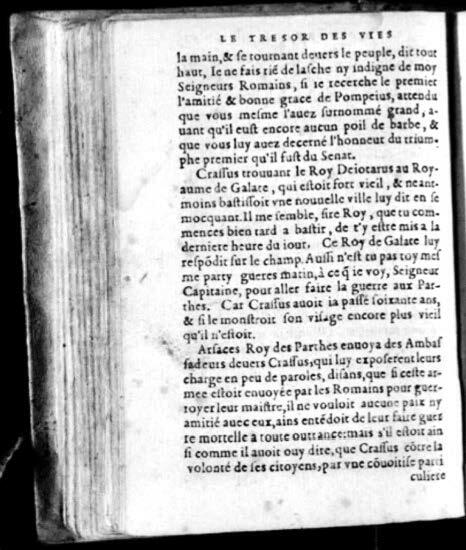 LE TRESOR DES VIES
la main, & se tournant deuers le peuple, dit tout
haut, Ie ne fais riē de lasche ny indigne de moy
Seigneurs Romains, si ie recerche le premier
l'amitié & bonne grace de Pompeius, attendu
que vous mesme l'auez surnommé grand, a-
uant qu'il eust encore aucun poil de barbe, &
que vous luy auez decerné l'honneur du trium-
phe premier qu'il fust du Senat.
Crassus trouuant le Roy Deiotarus au Roy-
aume de Galate, qui estoit fort vieil, & neant-
moins bastissoit vne nouuelle ville luy dit en se
mocquant. Il me semble, sire Roy, que tu com-
mences bien tard a bastir, de t'y estre mis a la
derniere heure du iour. Ce Roy de Galate luy
respōdit sur le champ. Aussi n'est tu pas toy mes
me party gueres matin, à ce q̄ ie voy, Seigneur
Capitaine, pour aller faire la guerre aux Par-
thes. Car Crassus auoit ia passé soixante ans,
& si le monstroit son visage encore plus vieil
qu'il n'estoit.
Arsaces Roy des Parthes enuoya des Ambas
sadeurs deuers Crassus, qui luy exposerent leurs
charge en peu de paroles, disans, que si ceste ar-
mee estoit enuoyée par les Romains pour guer-
royer leur maistre, il ne vouloit aucune paix ny
amitié auec eux, ains entēdoit de leur faire guer
re mortelle à toute outrance: mais s'il estoit ain
si comme il auoit ouy dire, que Crassus cōtre la
volonté de ses citoyens, par vne cōuoitise parti
culiere